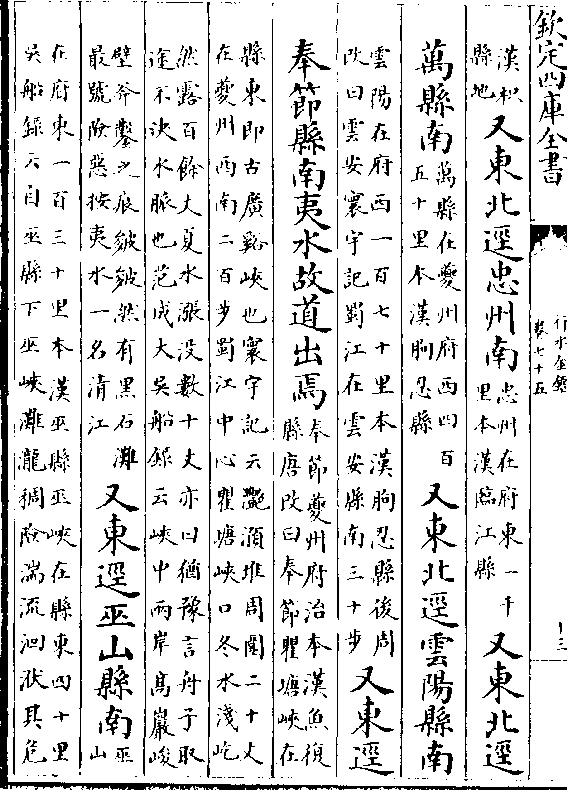 欽定四庫全書
行水金鑑
卷七十五
十三
漢枳
縣地
又東北逕忠州南
忠州在府東一千
里本漢臨江縣
又東北逕
萬縣南
萬縣在夔州府西四百
五十里本漢朐忍縣
又東北逕雲陽縣南
雲陽在府西一百七十里本漢朐忍縣後周
改曰雲安寰宇記蜀江在雲安縣南三十步
又東逕
奉節縣南夷水故道出焉
奉節夔州府治本漢魚復
縣唐改曰奉節瞿塘峽在
縣東即古廣谿峽也寰宇記云灧澦堆周圍二十丈
在夔州西南二百步蜀江中心瞿塘峽口冬水淺屹
然露百餘丈夏水漲没數十丈亦曰猶豫言舟子取
途不決水脈也范成大吳船録云峽中兩岸髙巖峻
壁斧鑿之痕皴皴然有黒石灘
最號險惡按夷水一名清江
又東逕巫山縣南
巫
山
在府東一百三十里本漢巫縣巫峽在縣東四十里
吳船録云自巫縣下巫峽灘瀧稠險湍流洄洑其危